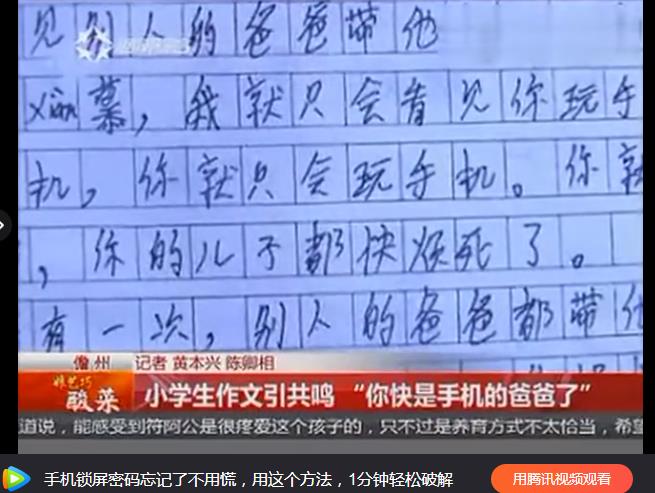 见别人的爸爸带他
慕，我就只会看见你玩手
机，你就只会玩手机。你就
，你的儿子都快烦死了。
有一次，别人的爸爸都带他
儋州
记者 黄本兴 陈卿相
酸菜
小学生作文引共鸣 “你快是手机的爸爸了”
道说，能感受到符阿公是很疼爱这个孩子的，只不过是养育方式不太恰当，希望
手机锁屏密码忘记了不用慌，用这个方法，1分钟轻松破解
用腾讯视频观看